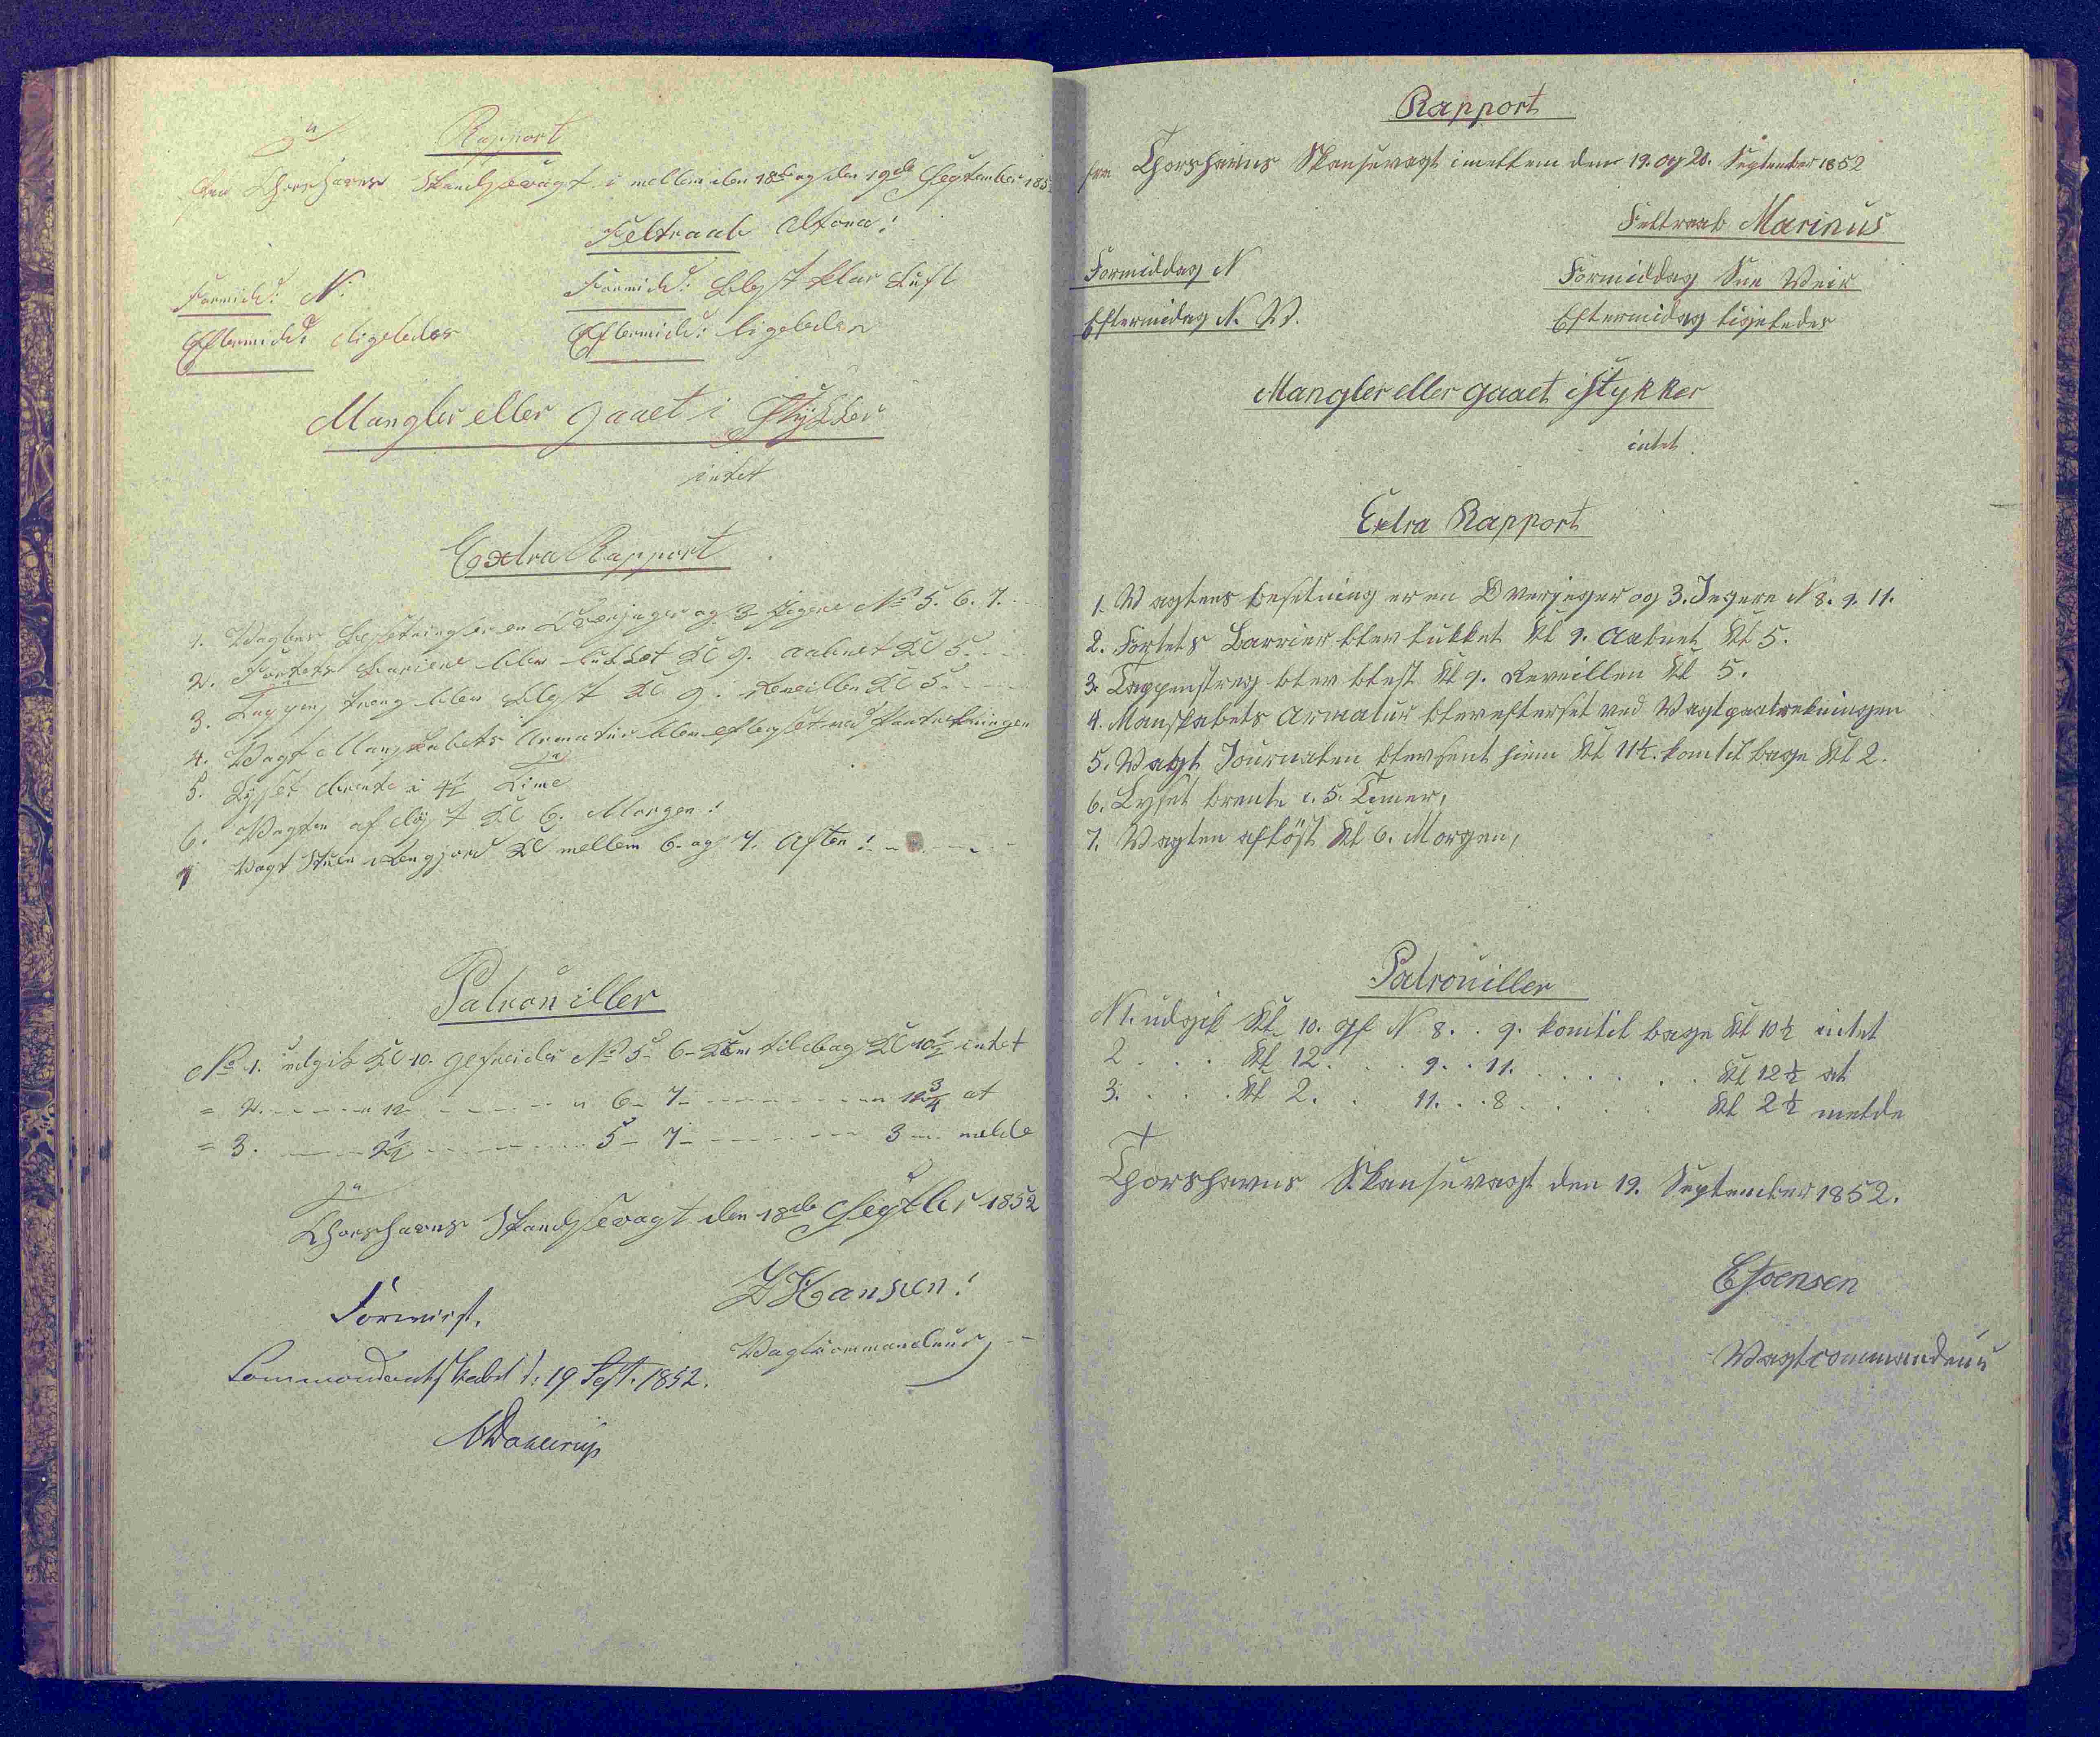 Rapport
fra Thorshavns Skandsevagt i mellem den 18de og den 19de September 185
Feltraab Altona!
Formid: N:
Formid: Blæst klar Luft
Eftermid: ligeledes
Eftermid: ligeledes
Mangler eller gaaet i Stykker
intet
Extra Rapport
1. Vagtens Besætning er en Overjæger og 3 Jægere No 5. 6. 7.
2. Fortets Bariere blev lukket Kl 9. aabnet Kl 5.
3. Tappenstreng blev blæst Kl 9. Reveillen Kl 5.
4. Vagt Mandskabets Armatur blev efterset ved
5. Lyset brente i 4½ Time
6. Vagten afløst Kl 6. Morgen!
7 Vagt Stuen Rengjord Kl mellem 6 og 7. Aften!
Patrouiller
No 1. udgik Kl 10. gefreider No 5 - 6 - Kom tilbag Kl 10½ intet
= 2. - - - " 12 - - - " 6 - 7 - - - " 12¾ at
= 3. - - - 2½ - - - 5 - 7 - - - 3 - melde
Thorshavns Skandsevagt den 18de Septbr 1852
Hansen!
Vagtcommandeur
Forevist.
Commandantskabet d: 19 Sept. 1852.
Dahlerup
Rapport
fra Thorshavns Skansevagt imellem den 19. og 20. September 1852
Feltraab Marinus
Formiddag N
Formiddag Sne Veir
Eftermidag N. W.
Eftermidag ligeledes
Mangler eller gaaet i Stykker
intet
Extra Rapport
1. Vagtens besetning er en Overjeger og 3. Jegere N 8. 9. 11.
2. Fortets Barrier blev lukket Kl 9. Aabnet Kl 5.
3. Tappenstreg blev blest Kl 9. Reveillen Kl 5.
4. Manskabets Armatur blev efterset ved Vagtpaatrekningen
5. Vagt Journalen blev sent hiem Kl 11½. kom til bage Kl 2.
6. Lyset brente i. 5. Timer,
7. Vagten afløst Kl 6. Morgen,
Patrouiller
N 1. udgik Kl 10. gf N 8. . 9. kom til bage Kl 10½ intet
2 . . . Kl 12. . . 9. . 11. . . . . . Kl 12½ at
3. . . . Kl 2. . 11. . . 8 . . . . . Kl 2½ melde
Thorshavns Skansevagt den 19. September 1852.
Vagtcommandeur